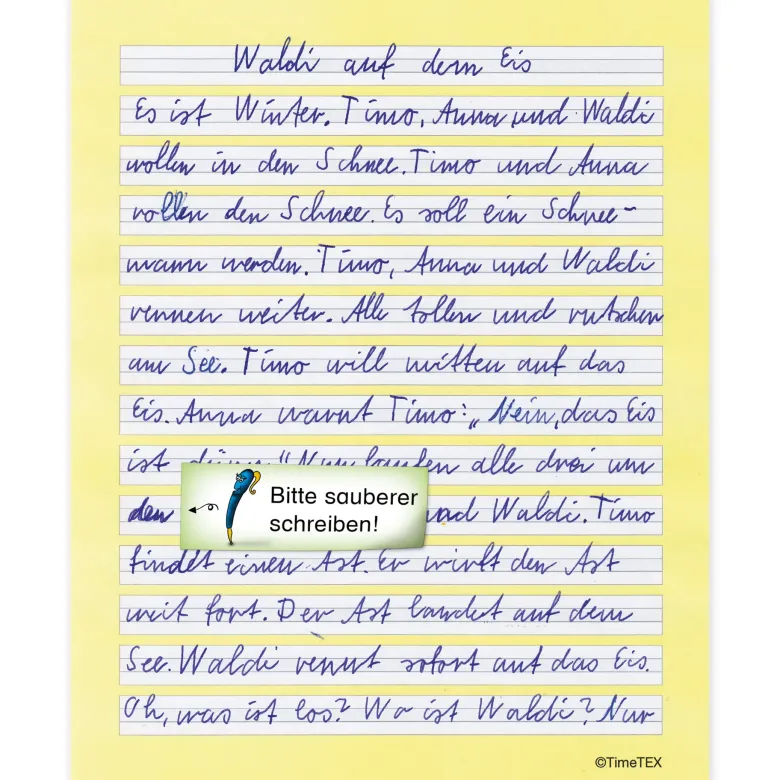 Waldi auf dem Eis
Es ist Winter. Timo, Anna und Waldi
wollen in den Schnee. Timo und Anna
rollen den Schnee. Es soll ein Schnee-
mann werden. Timo, Anna und Waldi
rennen weiter. Alle tollen und rutschen
am See. Timo will mitten auf das
Eis. Anna warnt Timo: „Nein, das Eis
ist dünn." Nun laufen alle drei um
den
Bitte sauberer
schreiben!
und Waldi. Timo
findet einen Ast. Er wirft den Ast
weit fort. Der Ast landet auf dem
See. Waldi rennt sofort auf das Eis.
Oh, was ist los? Wo ist Waldi? Nur
©TimeTEX